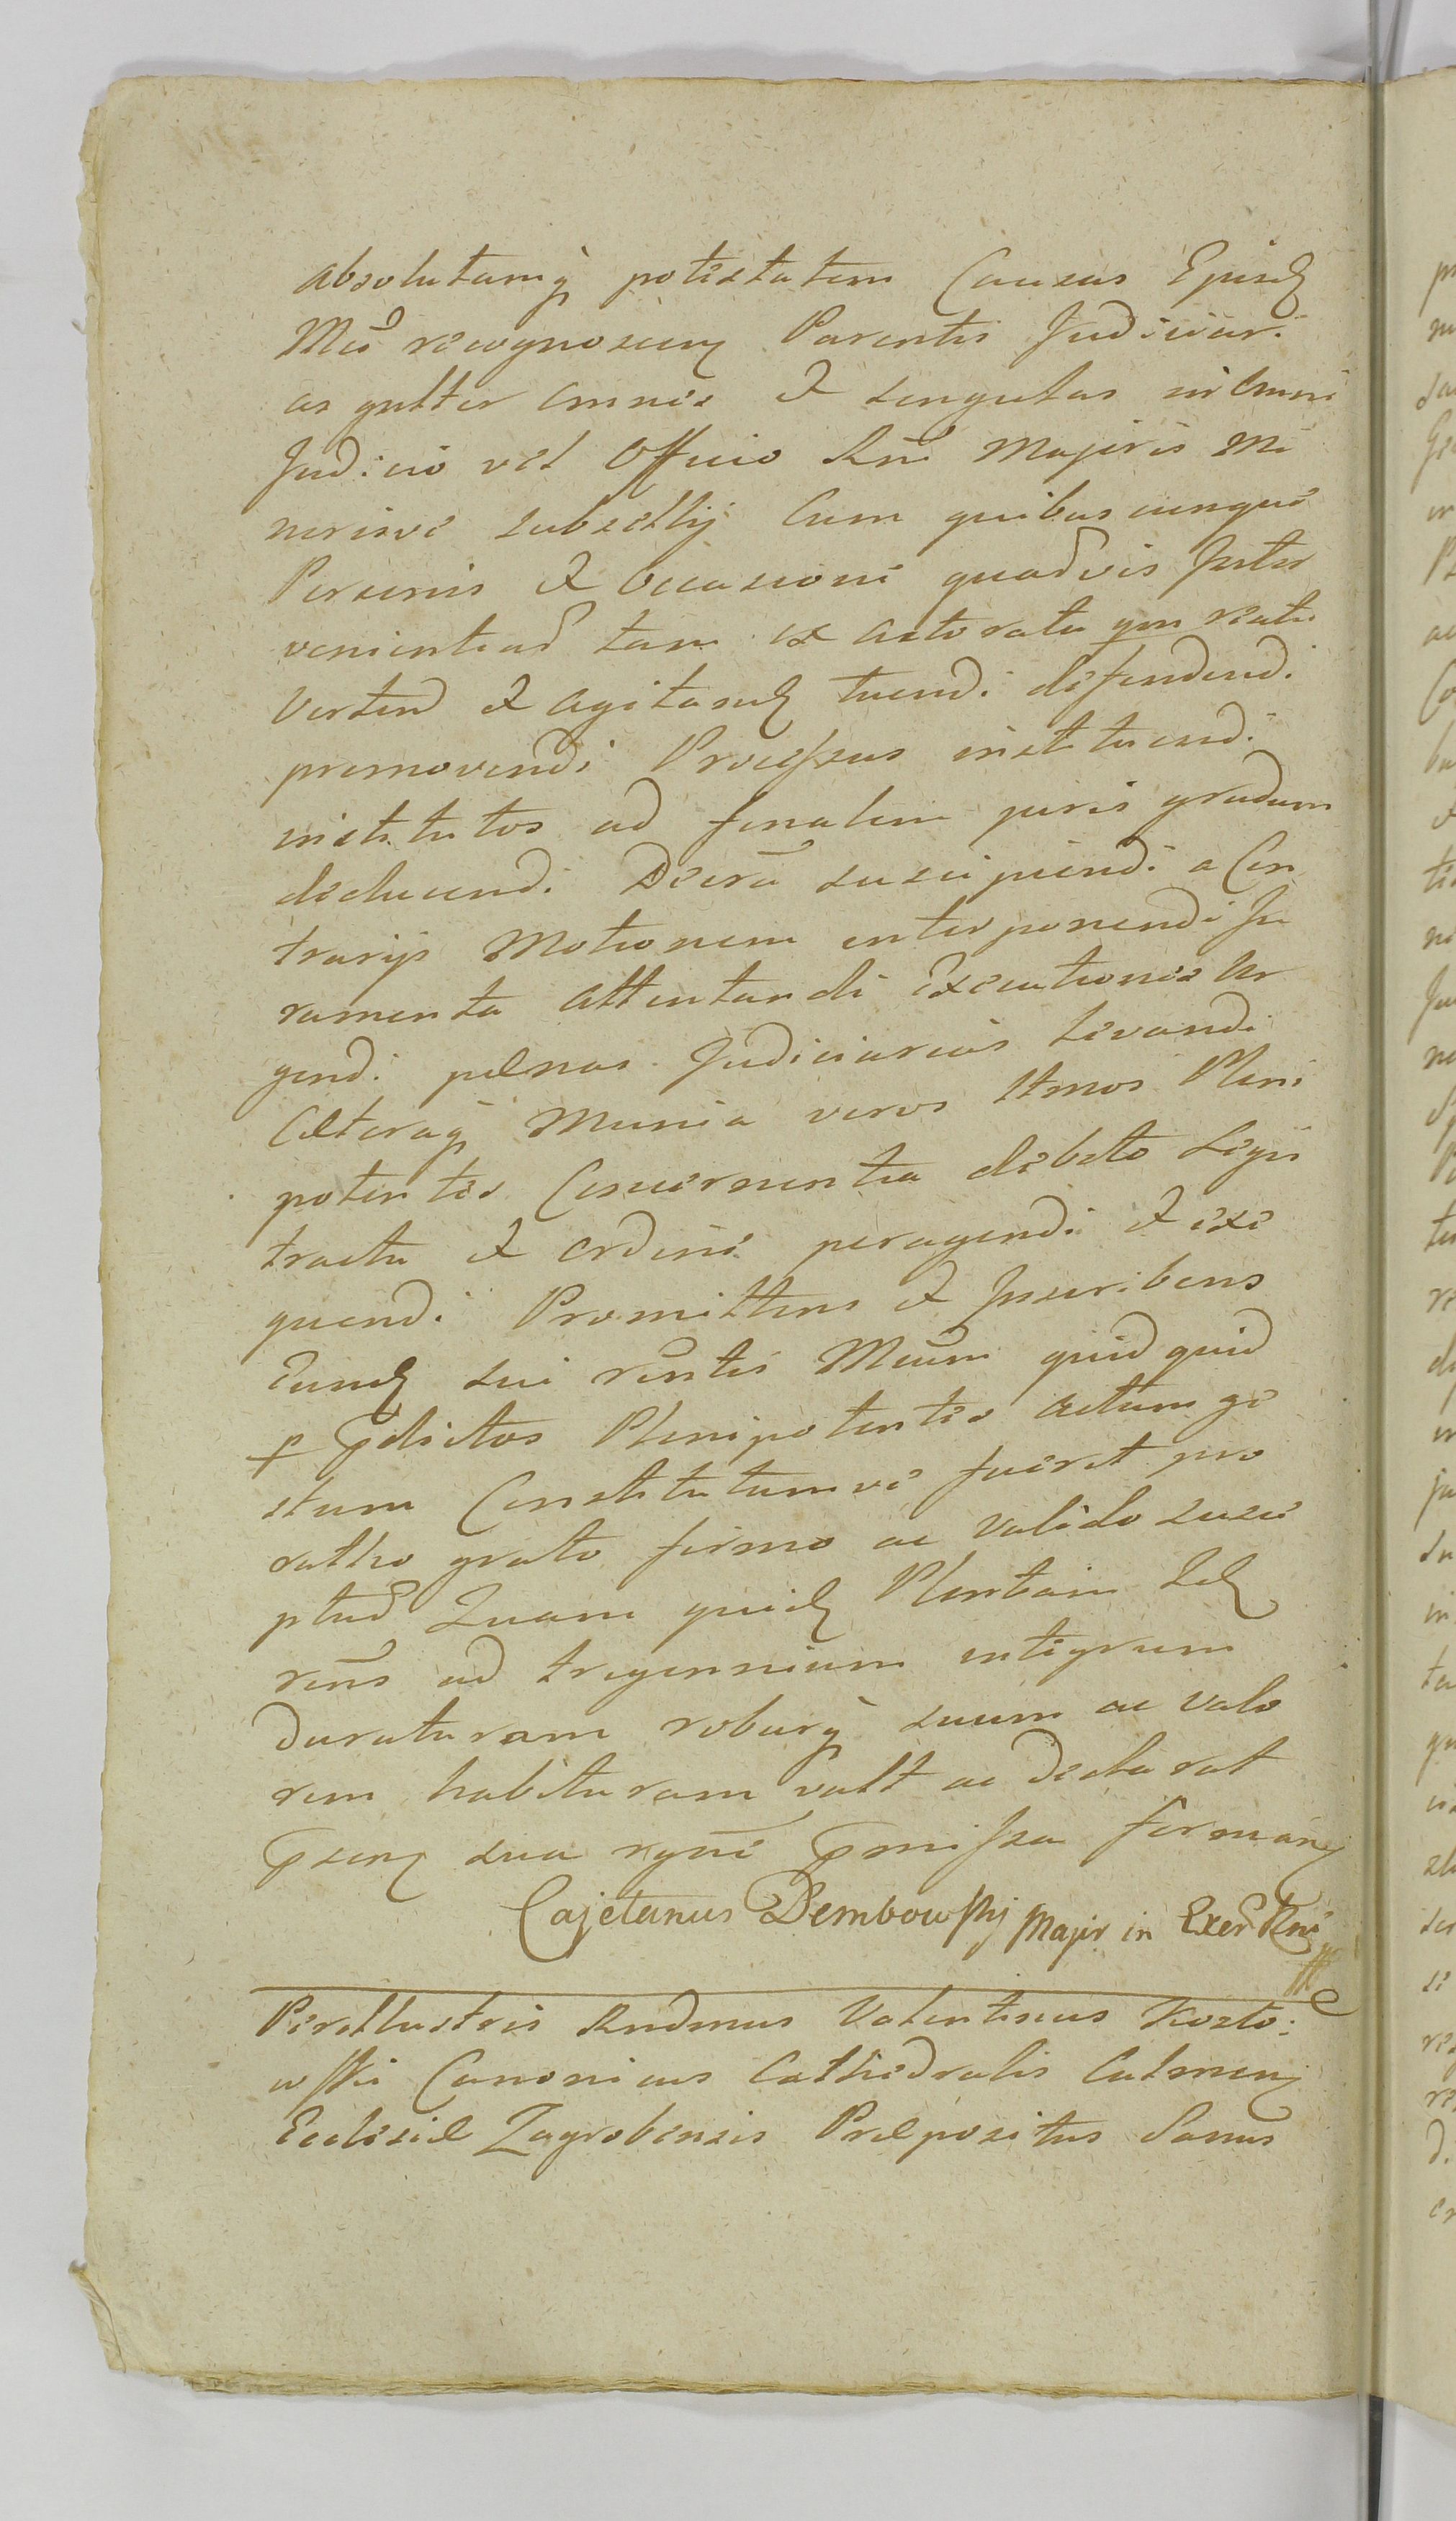 absolutamq̀ potestatem Causas Ejusd
Mci recognoscen Parentis Judiciari
as gnlter omnes et singulas in omni
Judicio vel Officio Rni Majoris Mi
norisve subsellij Cum quibuscunque
Personis et occasione quadvis Inter
veniented tam ex actoratu qm reatu
Vertend et agitasnd tuendi defendendi
promovendi Processus instituendi
institutos ad finalem juris gradum
deducendi Decra suscipiendi a Con
trarijs Motionem interponendi Ju
ramenta attentandi Executiones Ur
gendi pænas Judiciarias Levandi
Cæteraq̀ Munia veros Ltmos Pleni
potentes Concernentia debito Legis
tractu et ordine peragendi et exe
quendi Promittens et Inscribens
Eund sui rentis Mcum quidquid
p prdictos Plenipotentes actum ge
stum Constitutumve fuerit pro
ratho grato firmo ac Valido susce
pturd Quam quid Plentiam Id
rens ad tregennium integrum
Duraturam roburq̀ suum ac valo
rem habituram vult ac declarat
pscen sua rgnē pmissa forman
Cajetanus Dembowskj Major in Exer Rni
Perillustris Rndmus Valentinus Kozło:
wski Canonicus Cathedralis Culmen
Ecclesiæ Zagrobensis Præpositus Sanus